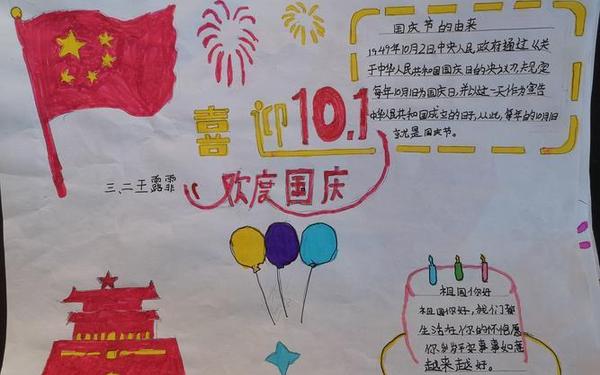 国庆节的由来
1949年10月2日,中央人民政府通过《关
于中华人民共和国国庆日的决议》,规定
每年10月1日为国庆日,并以这一天作为宣告
中华人民共和国成立的日子,从此,每年的10月1日
就是国庆节。
喜迎10.1
三、二王露霏
欢度国庆
祖国你好
祖国你好,我们都
生活在你的怀抱愿
你岁岁平安事事如意
越来越好。